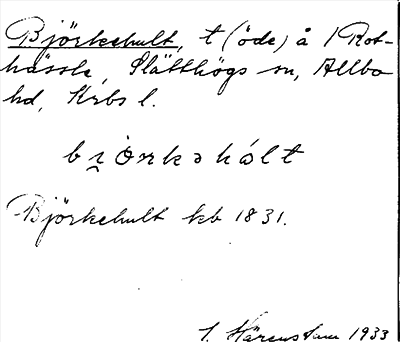 Björkehult, t (öde) å 1 Rot-
hässle, Slätthögs sn, Allbo
hd, Krbs l.
bi̯örkəhált
Björkehult kb 1831.
1933